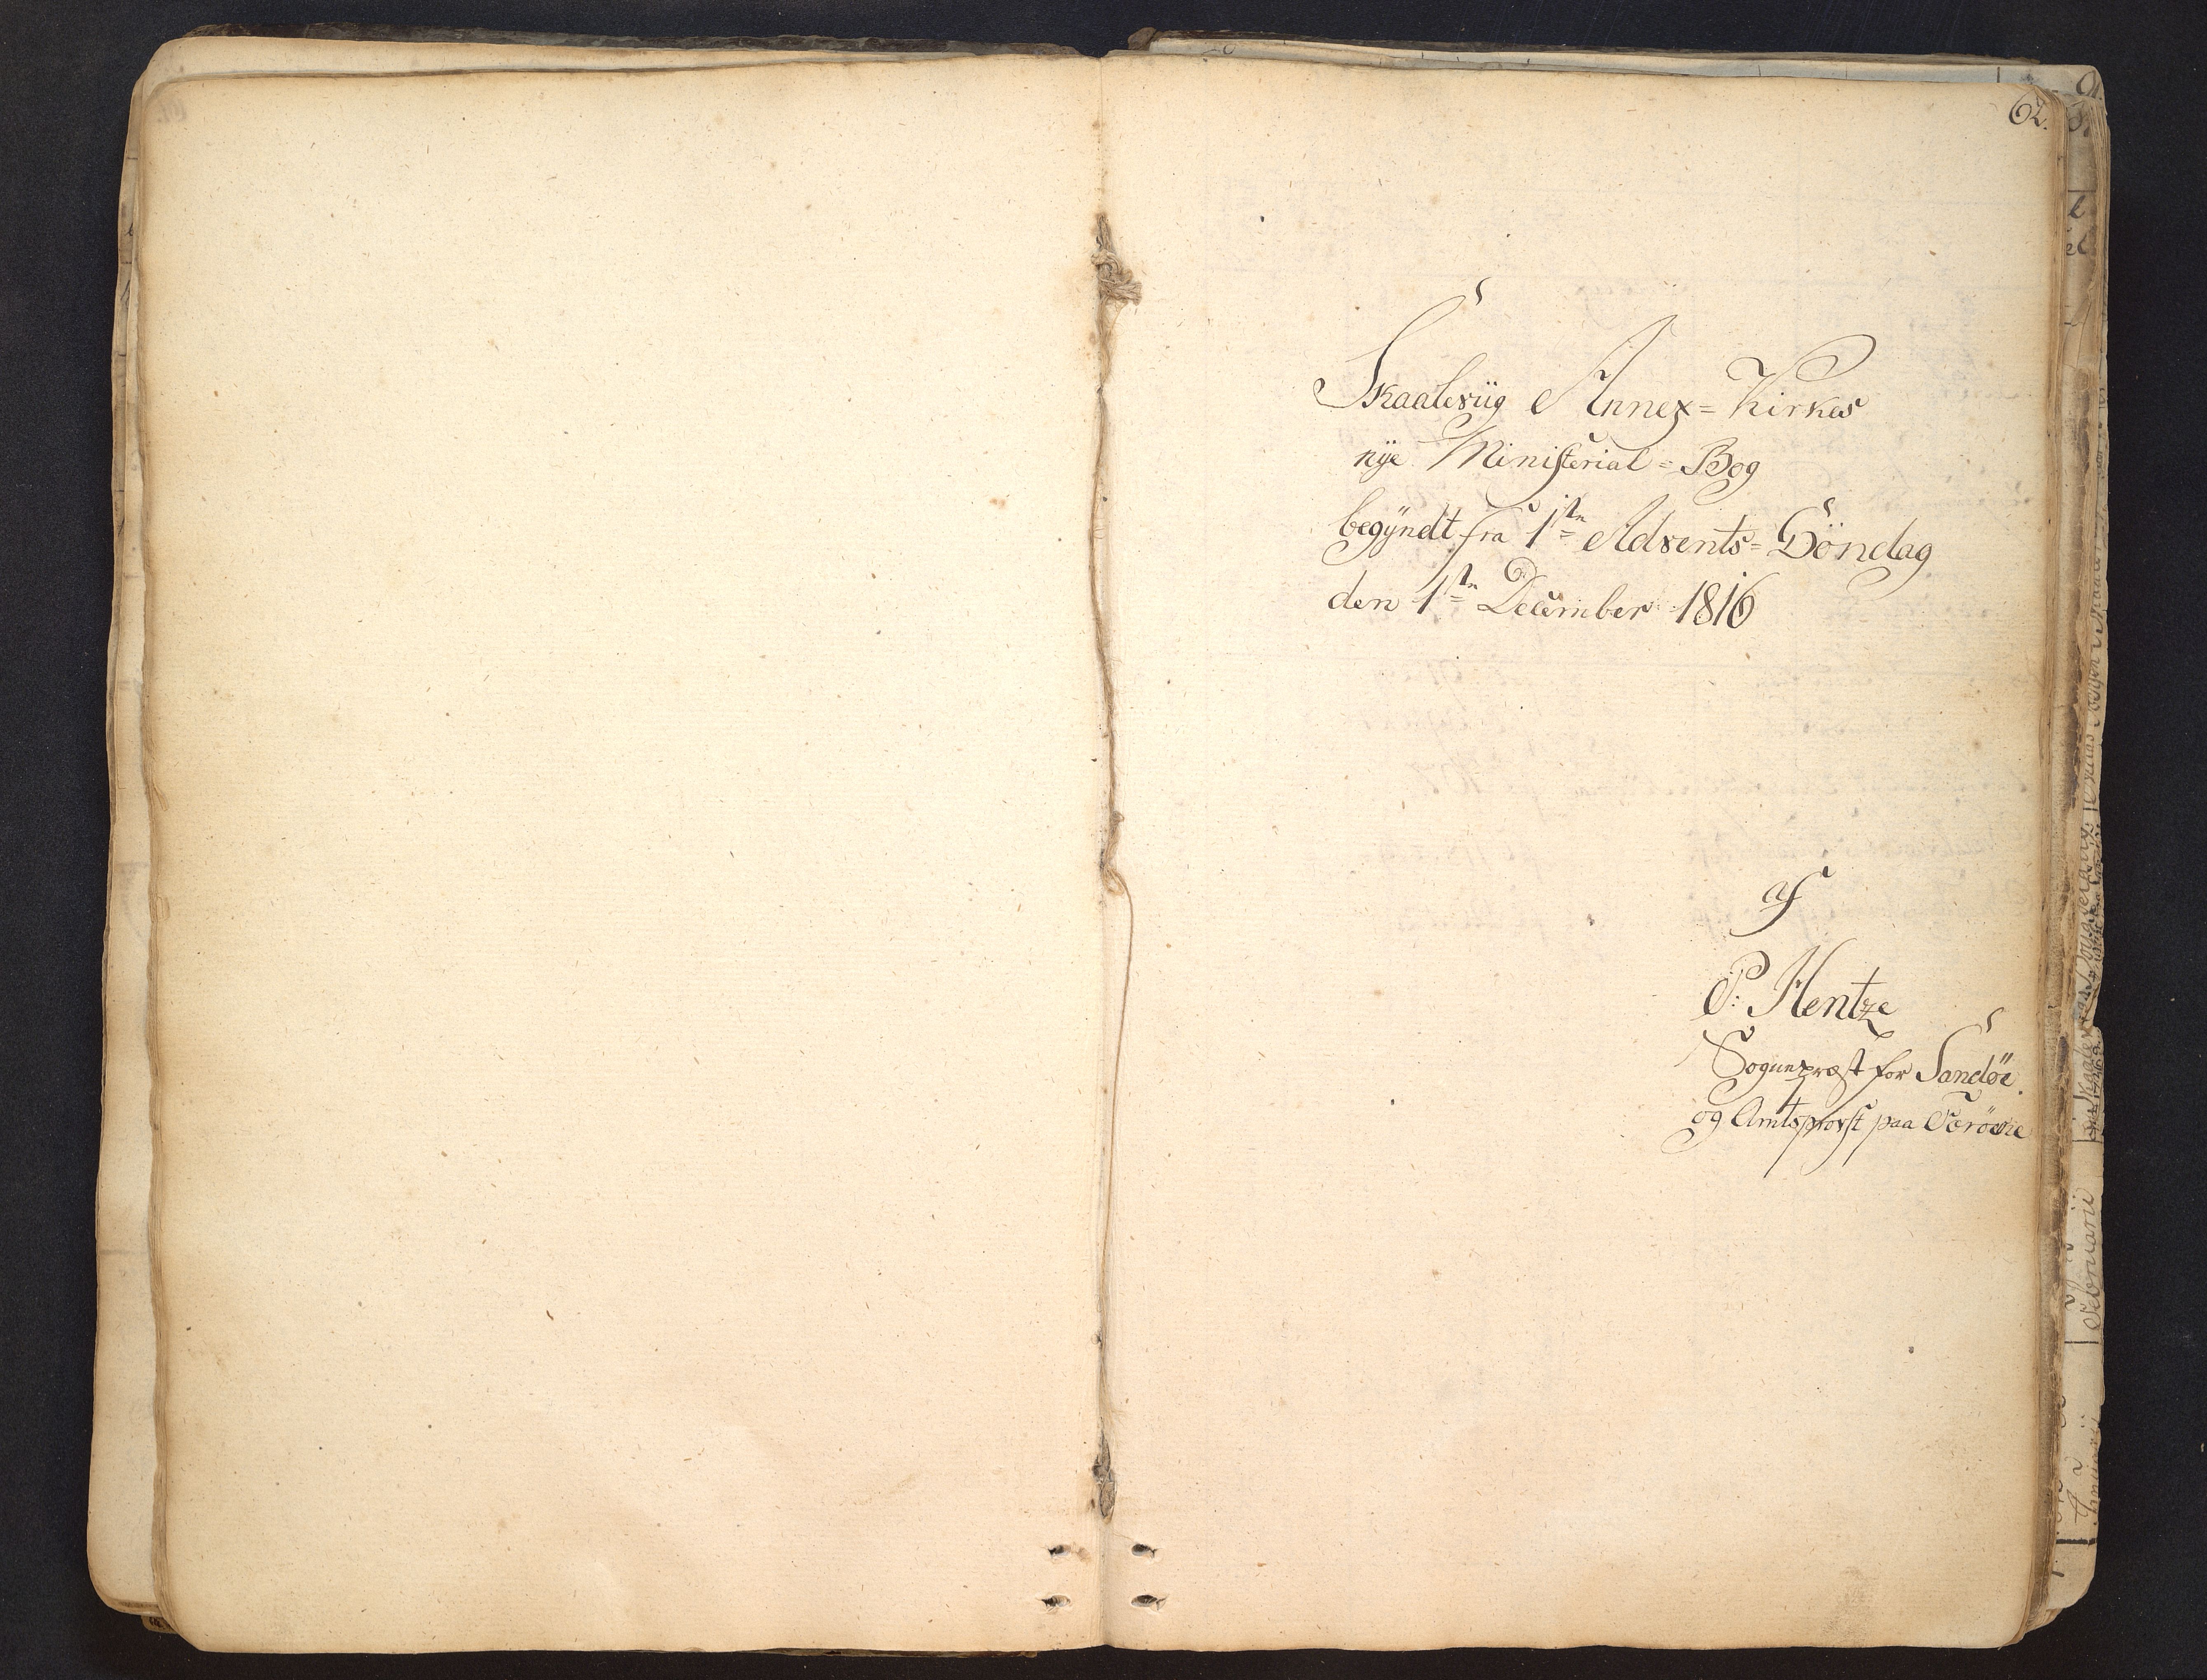 62.
Skaalevüg Annex= Kirkes
nÿe Ministerial= Bog
begÿndt fra 1ste Advents= Söndag
den 1ste December 1816
af
P: Hentze
Sognepræst for Sandöe
og Amtsprovst paa Færöerne
Februarii